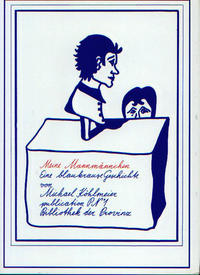 Meine Mannmännchen
Eine blaukrause Geschichte
von
Michael Köhlmeier
publication P. N° 1
Bibliothek der Provinz